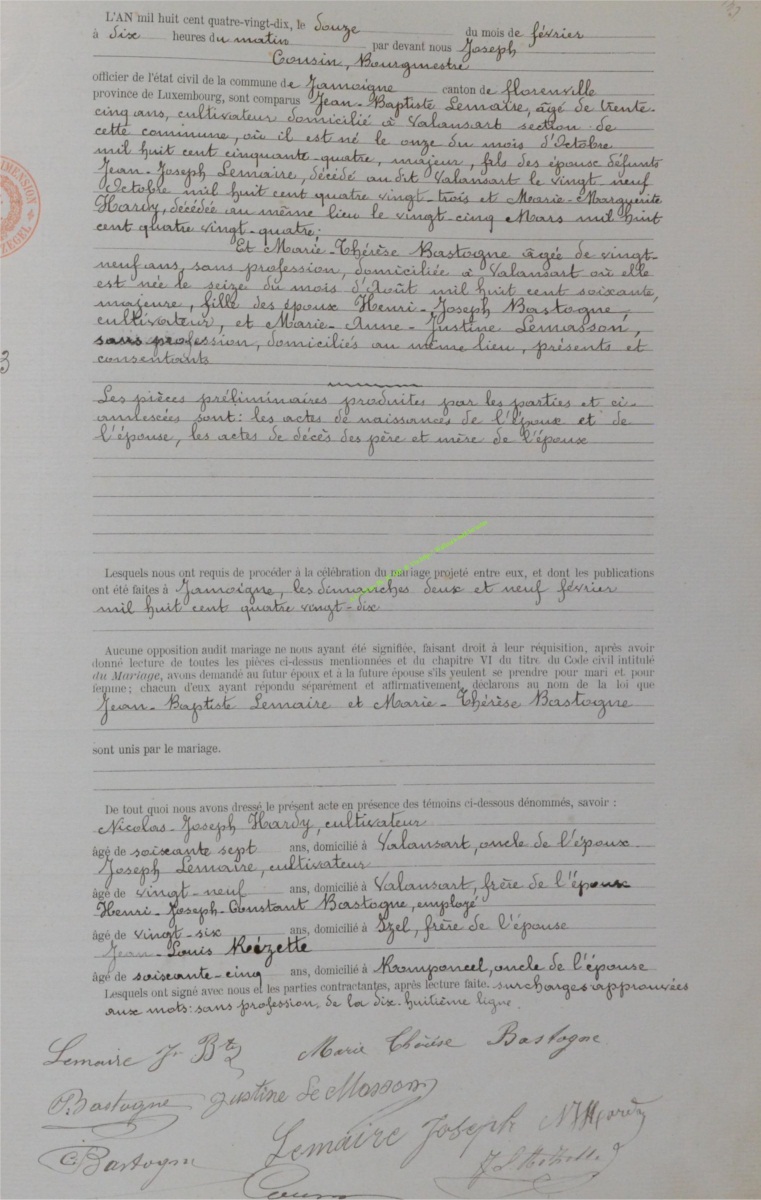 L'AN mil huit cent quatre-vingt-dix, le douze du mois de février
à dix heures du matin par devant nous Joseph
Cousin, Bourgmestre
officier de l'état civil de la commune de Jamoigne canton de florenville
province de Luxembourg, sont comparus Jean-Baptiste Lemaire, âgé de trente-
cinq ans, cultivateur domicilié à Valansart section de
cette commune, où il est né le onze du mois d'Octobre
mil huit cent cinquante-quatre, majeur, fils des époux défunts
Jean-Joseph Lemaire, décédé au dit Valansart le vingt neuf
Octobre mil huit cent quatre vingt-trois et Marie-Marguerite
Hardy, décédée au même lieu le vingt-cinq Mars mil huit
cent quatre vingt-quatre.
Et Marie-Thérèse Bastogne âgée de vingt-
neuf ans, sans profession, domiciliée à Valansart où elle
est née le seize du mois d'Août mil huit cent soixante,
majeure, fille des époux Henri-Joseph Bastogne,
cultivateur, et Marie-Anne-Justine Lemasson,
sans profession, domiciliés au même lieu, présents et
consentants
Les pièces préliminaires produites par les parties et ci-
annescées sont: les actes de naissances de l'époux et de
l'épouse, les actes de décès des père et mère de l'époux
Lesquels nous ont requis de procéder à la célébration du mariage projeté entre eux, et dont les publications
ont été faites à Jamoigne, les dimanches deux et neuf février
mil huit cent quatre vingt-dix
Aucune opposition audit mariage ne nous ayant été signifiée, faisant droit à leur réquisition, après avoir
donné lecture de toutes les pièces ci-dessus mentionnées et du chapitre VI du titre du Code civil intitulé
du Mariage, avons demandé au futur époux et à la future épouse s'ils veulent se prendre pour mari et pour
femme; chacun d'eux ayant répondu séparément et affirmativement, déclarons au nom de la loi que
Jean-Baptiste Lemaire et Marie-Thérèse Bastogne
sont unis par le mariage.
De tout quoi nous avons dressé le présent acte en présence des témoins ci-dessous dénommés, savoir :
Nicolas-Joseph Hardy, cultivateur
âgé de soixante sept ans, domicilié à Valansart, oncle de l'époux
Joseph Lemaire, cultivateur
âgé de vingt-neuf ans, domicilié à Valansart, frère de l'époux
Henri-Joseph-Constant Bastogne, employé
âgé de vingt-six ans, domicilié à Izel, frère de l'épouse
Jean-Louis Rézette
âgé de soixante-cinq ans, domicilié à Romponcel, oncle de l'épouse
Lesquels ont signé avec nous et les parties contractantes, après lecture faite. surcharges approuvées
aux mots: sans profession. de la dix-huitième ligne.
Lemaire Jn Bte Marie Thérèse Bastogne
Bastogne Justine Le Masson
Lemaire Joseph NJ Hardy
C Bastogne
Cousin